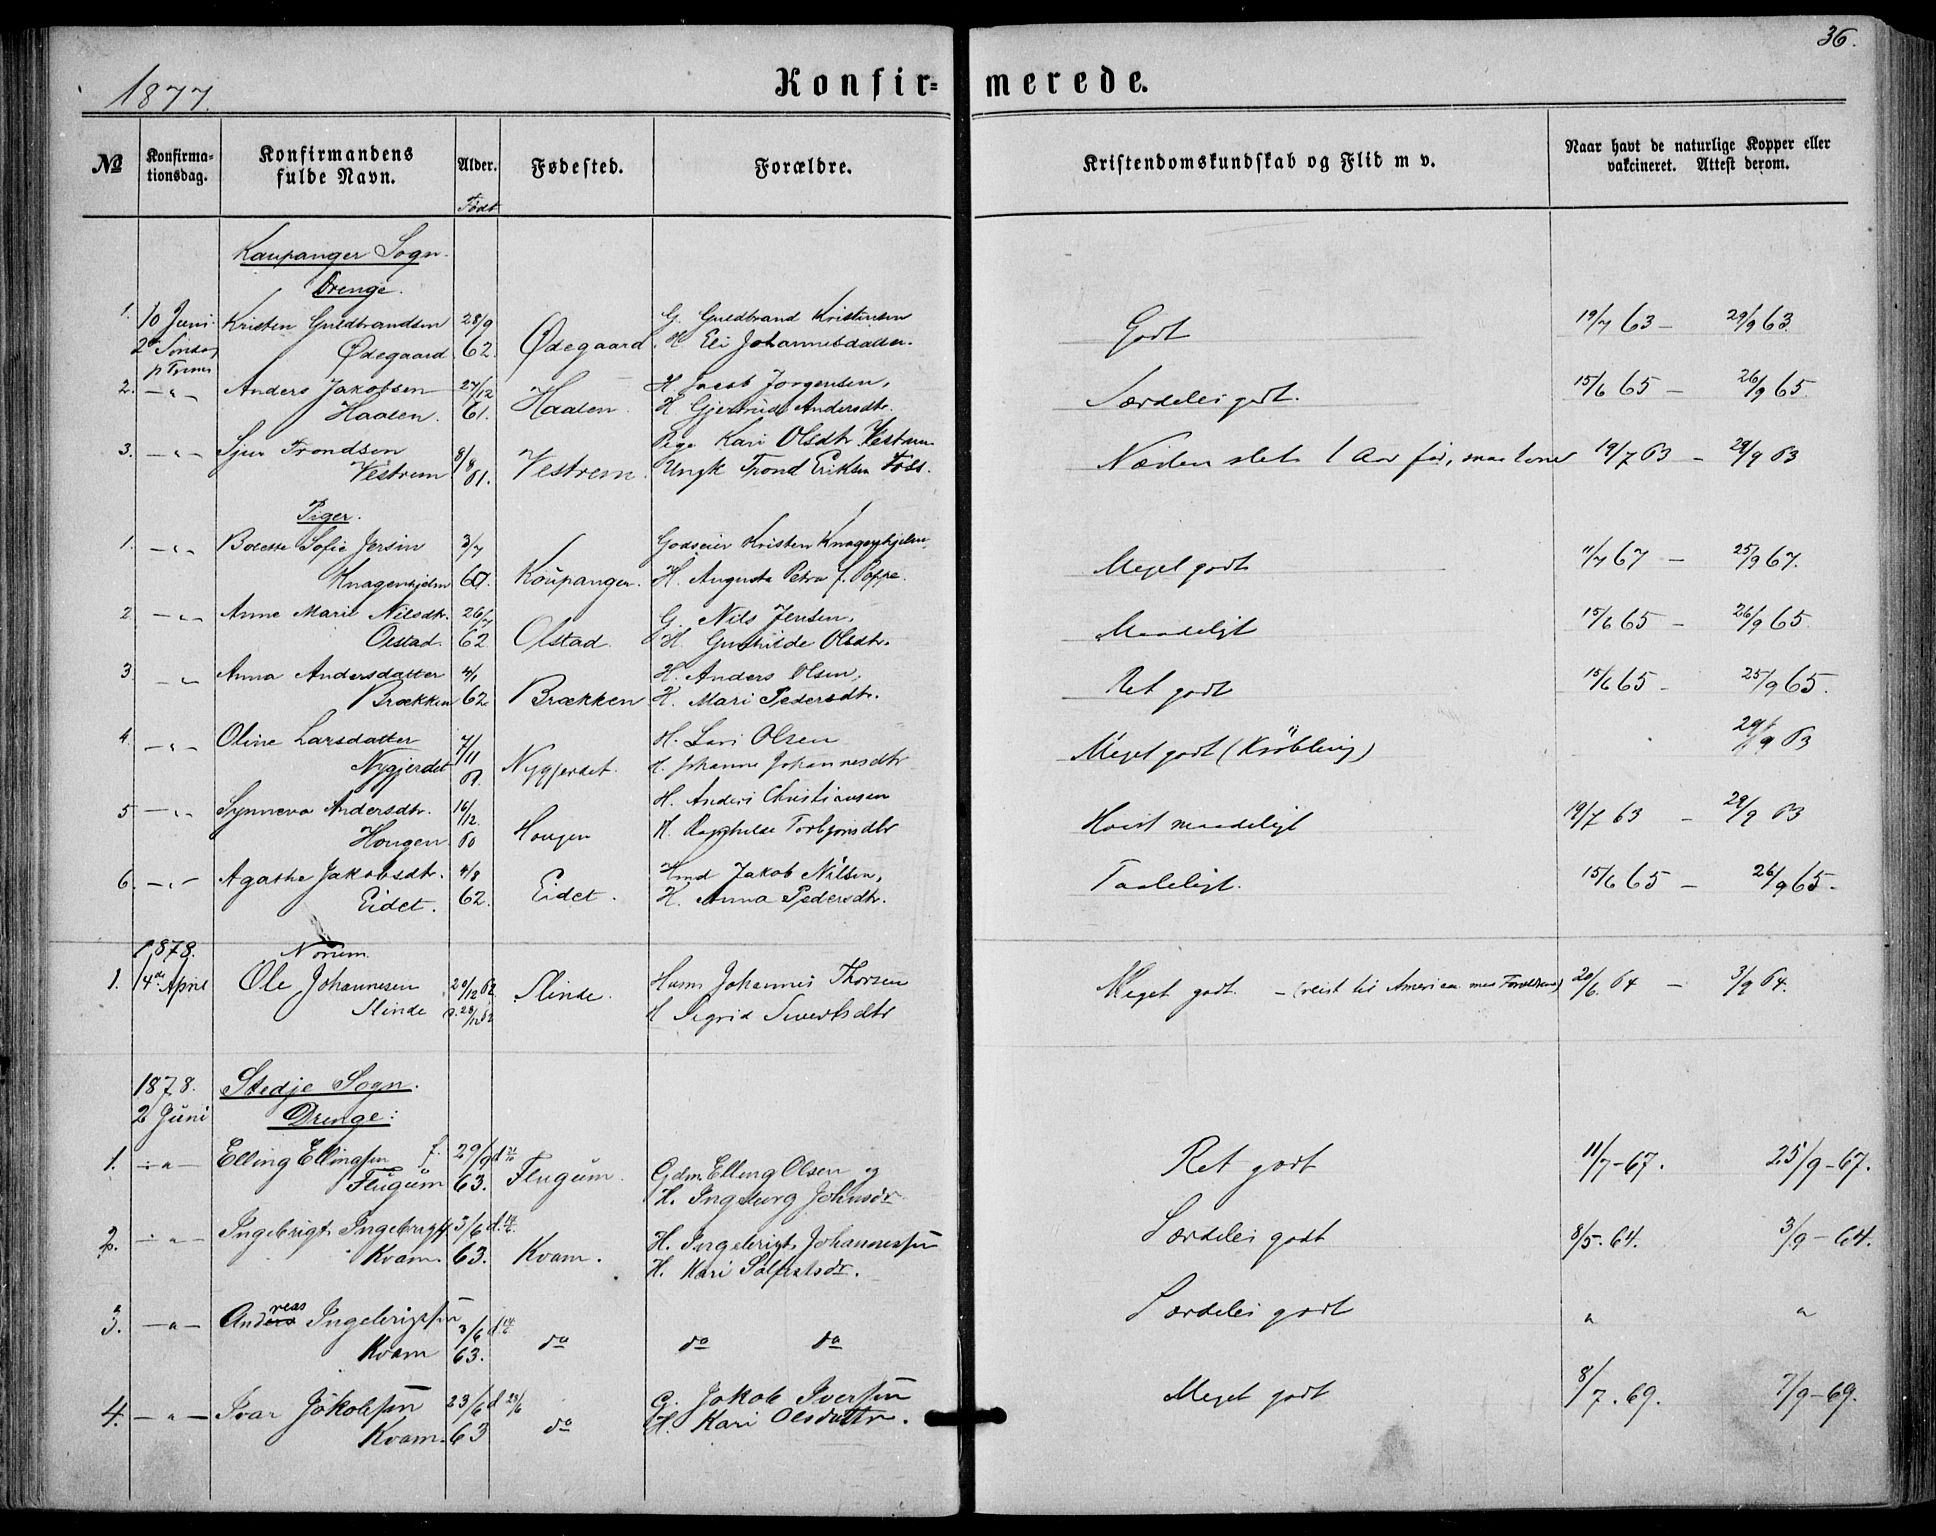 36.
1877.
Konfir= merede.
№ Konfirma-tionsdag. Konfirmandens fulde Navn. Alder. Fødested. Forældre. Kristendomskundskab og Flid m v. Naar havt de naturlige Kopper eller vakcineret. Attest derom.
Født
Kaupanger Sogn.
Drenge.
1. 10 Juni Kristen Guldbrandsen 28/9 G. Guldbrand Kristensen
2 Søndag Ødegaard 62. Ødegaard. H. Eli Johannesdatter. Godt 19/7 63 — 29/9 63.
p Trinit
2. — " — Anders Jakobsen 27/12 H. Jacob Jørgensen,
Haalen. 61. Haalen. H Gjertrud Andersdtr. Særdeles godt. 15/6 65 — 26/9 65.
3. — " — Sjur Trondsen 8/8 Pige Kari Olsdtr Vestrem
Vestrem 61. Vestrem. Ungk Trond Eriksen 1 Aar før, 19/7 63 — 29/9 63
Piger.
1. — " — Bolette Sofie Jersin 3/7 Godseier Kristen Knagenhjelm,
Knagenhjelm 60. Kaupanger. H. Augusta Petra f. Poppe. Meget godt 11/7 67 — 25/9 67.
2 — " — Anne Marie Nilsdtr. 26/7 G. Nils Jensen,
Olstad. 62 Olstad. H. Gunhilde Olsdtr. Maadeligt 15/6 65 — 26/9 65.
3 — " — Anna Andersdatter 4/1 H. Anders Olsen,
Brækken 62 Brækken H. Mari Pedersdtr. Ret godt 15/6 65 — 25/9 65.
4. — " — Oline Larsdatter 7/11 H. Lars Olsen
Nygjerdet 61. Nygjerdet. H. Johanne Johannesdtr Meget godt (Krøbling) 29/9 63
5 — " — Synneva Andersdtr. 16/12. H. Anders Christiansen
Hougen 60 Hougen H. Ragnhilde Torbjørnsdtr maadeligt 19/7 63 — 29/9 63
6. — " — Agathe Jakobsdtr. 4/8 Hmd Jakob Nilsen,
Eidet. 62. Eidet. H. Anna Pedersdtr. Taaleligt. 15/6 65 — 26/9 65.
1878. Norum.
1. 14de April Ole Johannesen 20/12 62 Slinde. Huusm Johannes Thorsen Meget godt. — (reist til America med Forældrene) 20/6. 64 — 3/9 64.
Slinde 28/12 62 H Sigrid Sivertsdtr
1878. Stedje Sogn.
2 Juni Drenge:
1. — " — Elling Ellingsen f. 29/9 d Flugum. Gdm. Elling Olsen og Ret godt 11/7-67. 25/9-67.
Flugum 63. H. Ingeborg Johnsdr
2. — " — Ingebrigt Ingebrigts. 3/6 d. 14/6 H. Ingebrigt Johannessen Særdeles godt 8/5. 64. 3/9-64.
Kvam. 63. Kvam. H. Kari Solfestsdr.
3. — " — Andreas Ingebrigtsen 3/6 d. 14/6 Særdeles godt " "
Kvam 63. do do do
4. — " — Ivar Jakobsen 23/6 d 28/6 G. Jakob Iversen Meget godt 8/7. 69. 7/9-69.
Kvam. 63 do H. Kari Olsdatter.